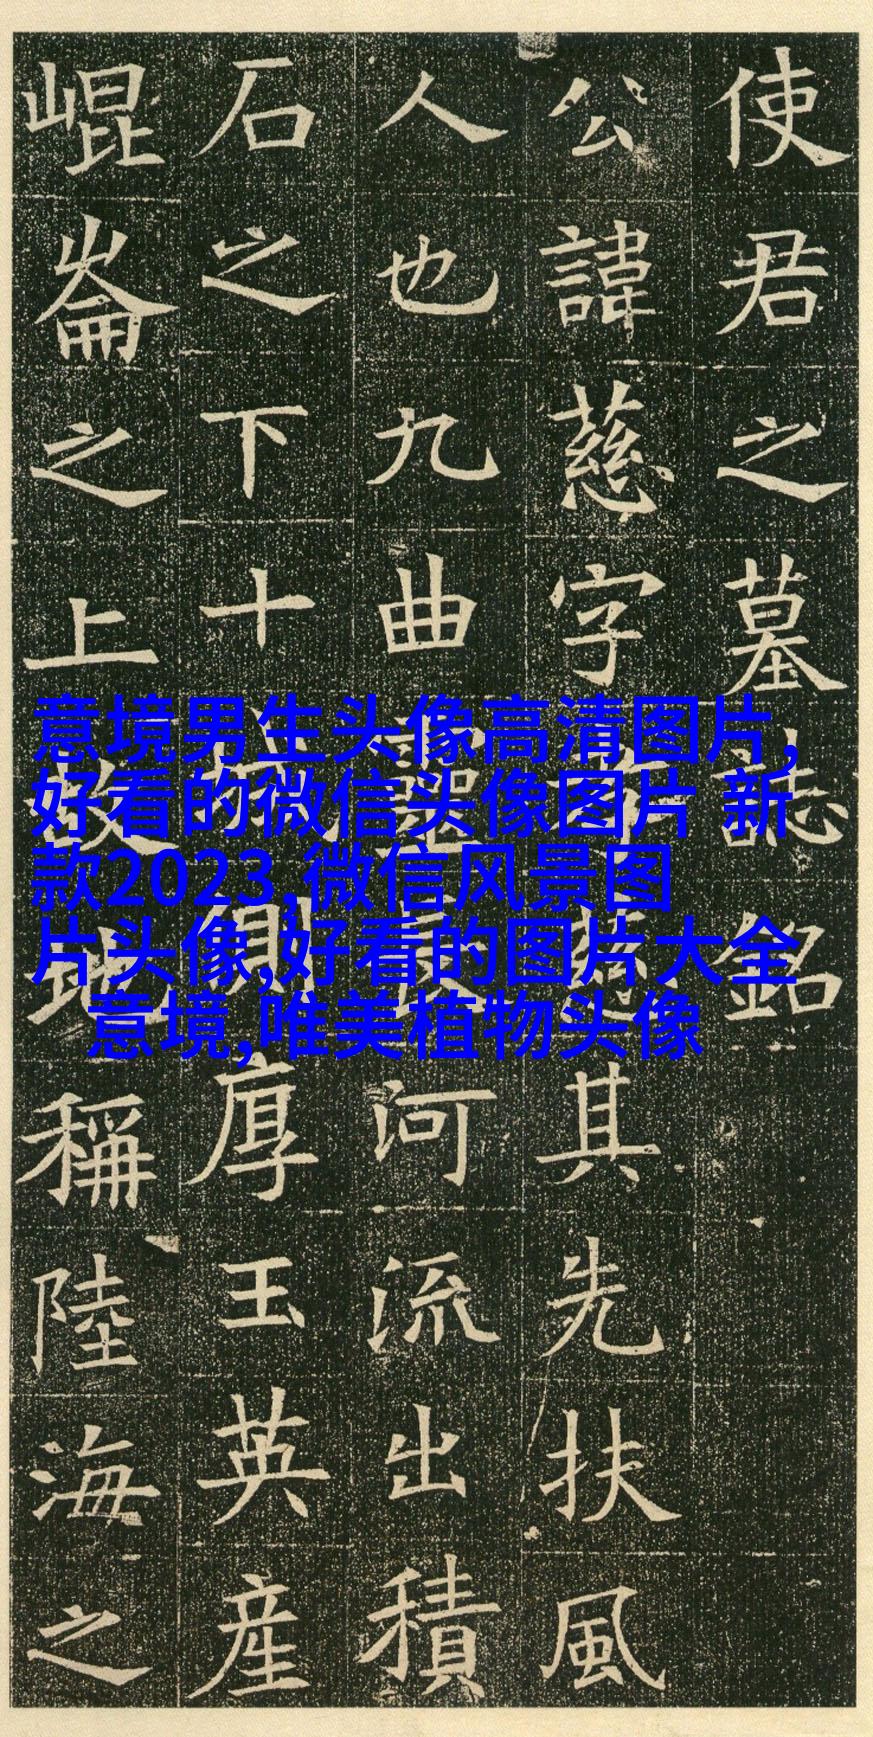 使君之墓誌銘
公諱慈字慈其先扶風
人也九曲河流出積
石之下十則厚王英産
崐崘之上故地稱陸海之
意境男生头像高清图片,
好看的微信头像图片 新
款2023,微信风景图
片头像,好看的图片大全
意境,唯美植物头像